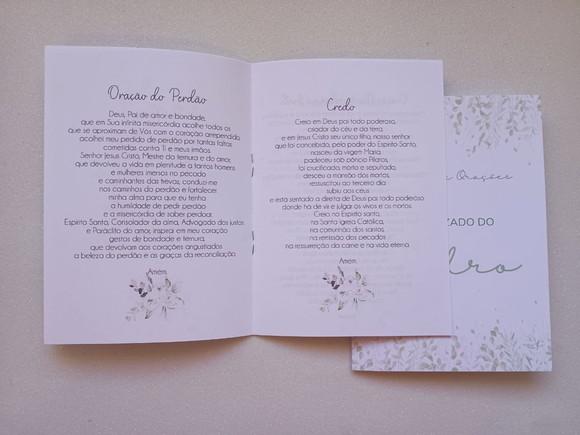 Oração do Perdão
Deus, Pai de amor e bondade,
que em Sua infinita misericórdia acolhe todos os
que se aproximam de Vós com o coração arrependido,
acolhei meu pedido de perdão por tantas faltas
cometidas contra Ti e meus irmãos.
Senhor Jesus Cristo, Mestre da ternura e do amor,
que devolveu a vida em plenitude a tantos homens
e mulheres imersos no pecado
e caminhantes das trevas, conduz-me
nos caminhos do perdão e fortalecer
minha alma para que eu tenha
a humildade de pedir perdão
e a misericórdia de saber perdoar.
Espírito Santo, Consolador da alma, Advogado dos justos
e Paráclito do amor, inspira em meu coração
gestos de bondade e ternura,
que devolvam aos corações angustiados
a beleza do perdão e as graças da reconciliação.
Amém.
Credo
Creio em Deus pai todo poderoso,
criador do céu e da terra,
e em Jesus Cristo seu único filho, nosso senhor
que foi concebido, pelo poder do Espírito Santo,
nasceu da virgem Maria.
padeceu sob pôncio Pilatos,
foi crucificado, morto e sepultado,
desceu a mansão dos mortos,
ressuscitou ao terceiro dia
subiu aos céus
e está sentado a direita de Deus pai todo poderoso
donde há de vir e julgar os vivos e os mortos.
Creio no Espírito santo,
na Santa Igreja Católica,
na comunhão dos santos,
na remissão dos pecados
na ressurreição da carne e na vida eterna.
Amém.
Orações
ZADO DO
dro